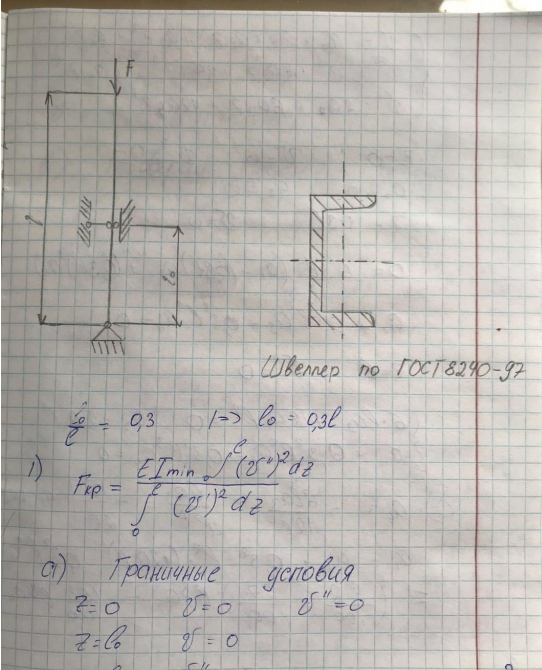 F
l
l₀
Швеллер по ГОСТ 8240-97
l₀/l = 0,3 |=> l₀ = 0,3l
1) Fкр = EImin ₀∫ˡ (v'')² dz / ₀∫ˡ (v')² dz
а) Граничные условия
z=0 v=0 v''=0
z=l₀ v=0